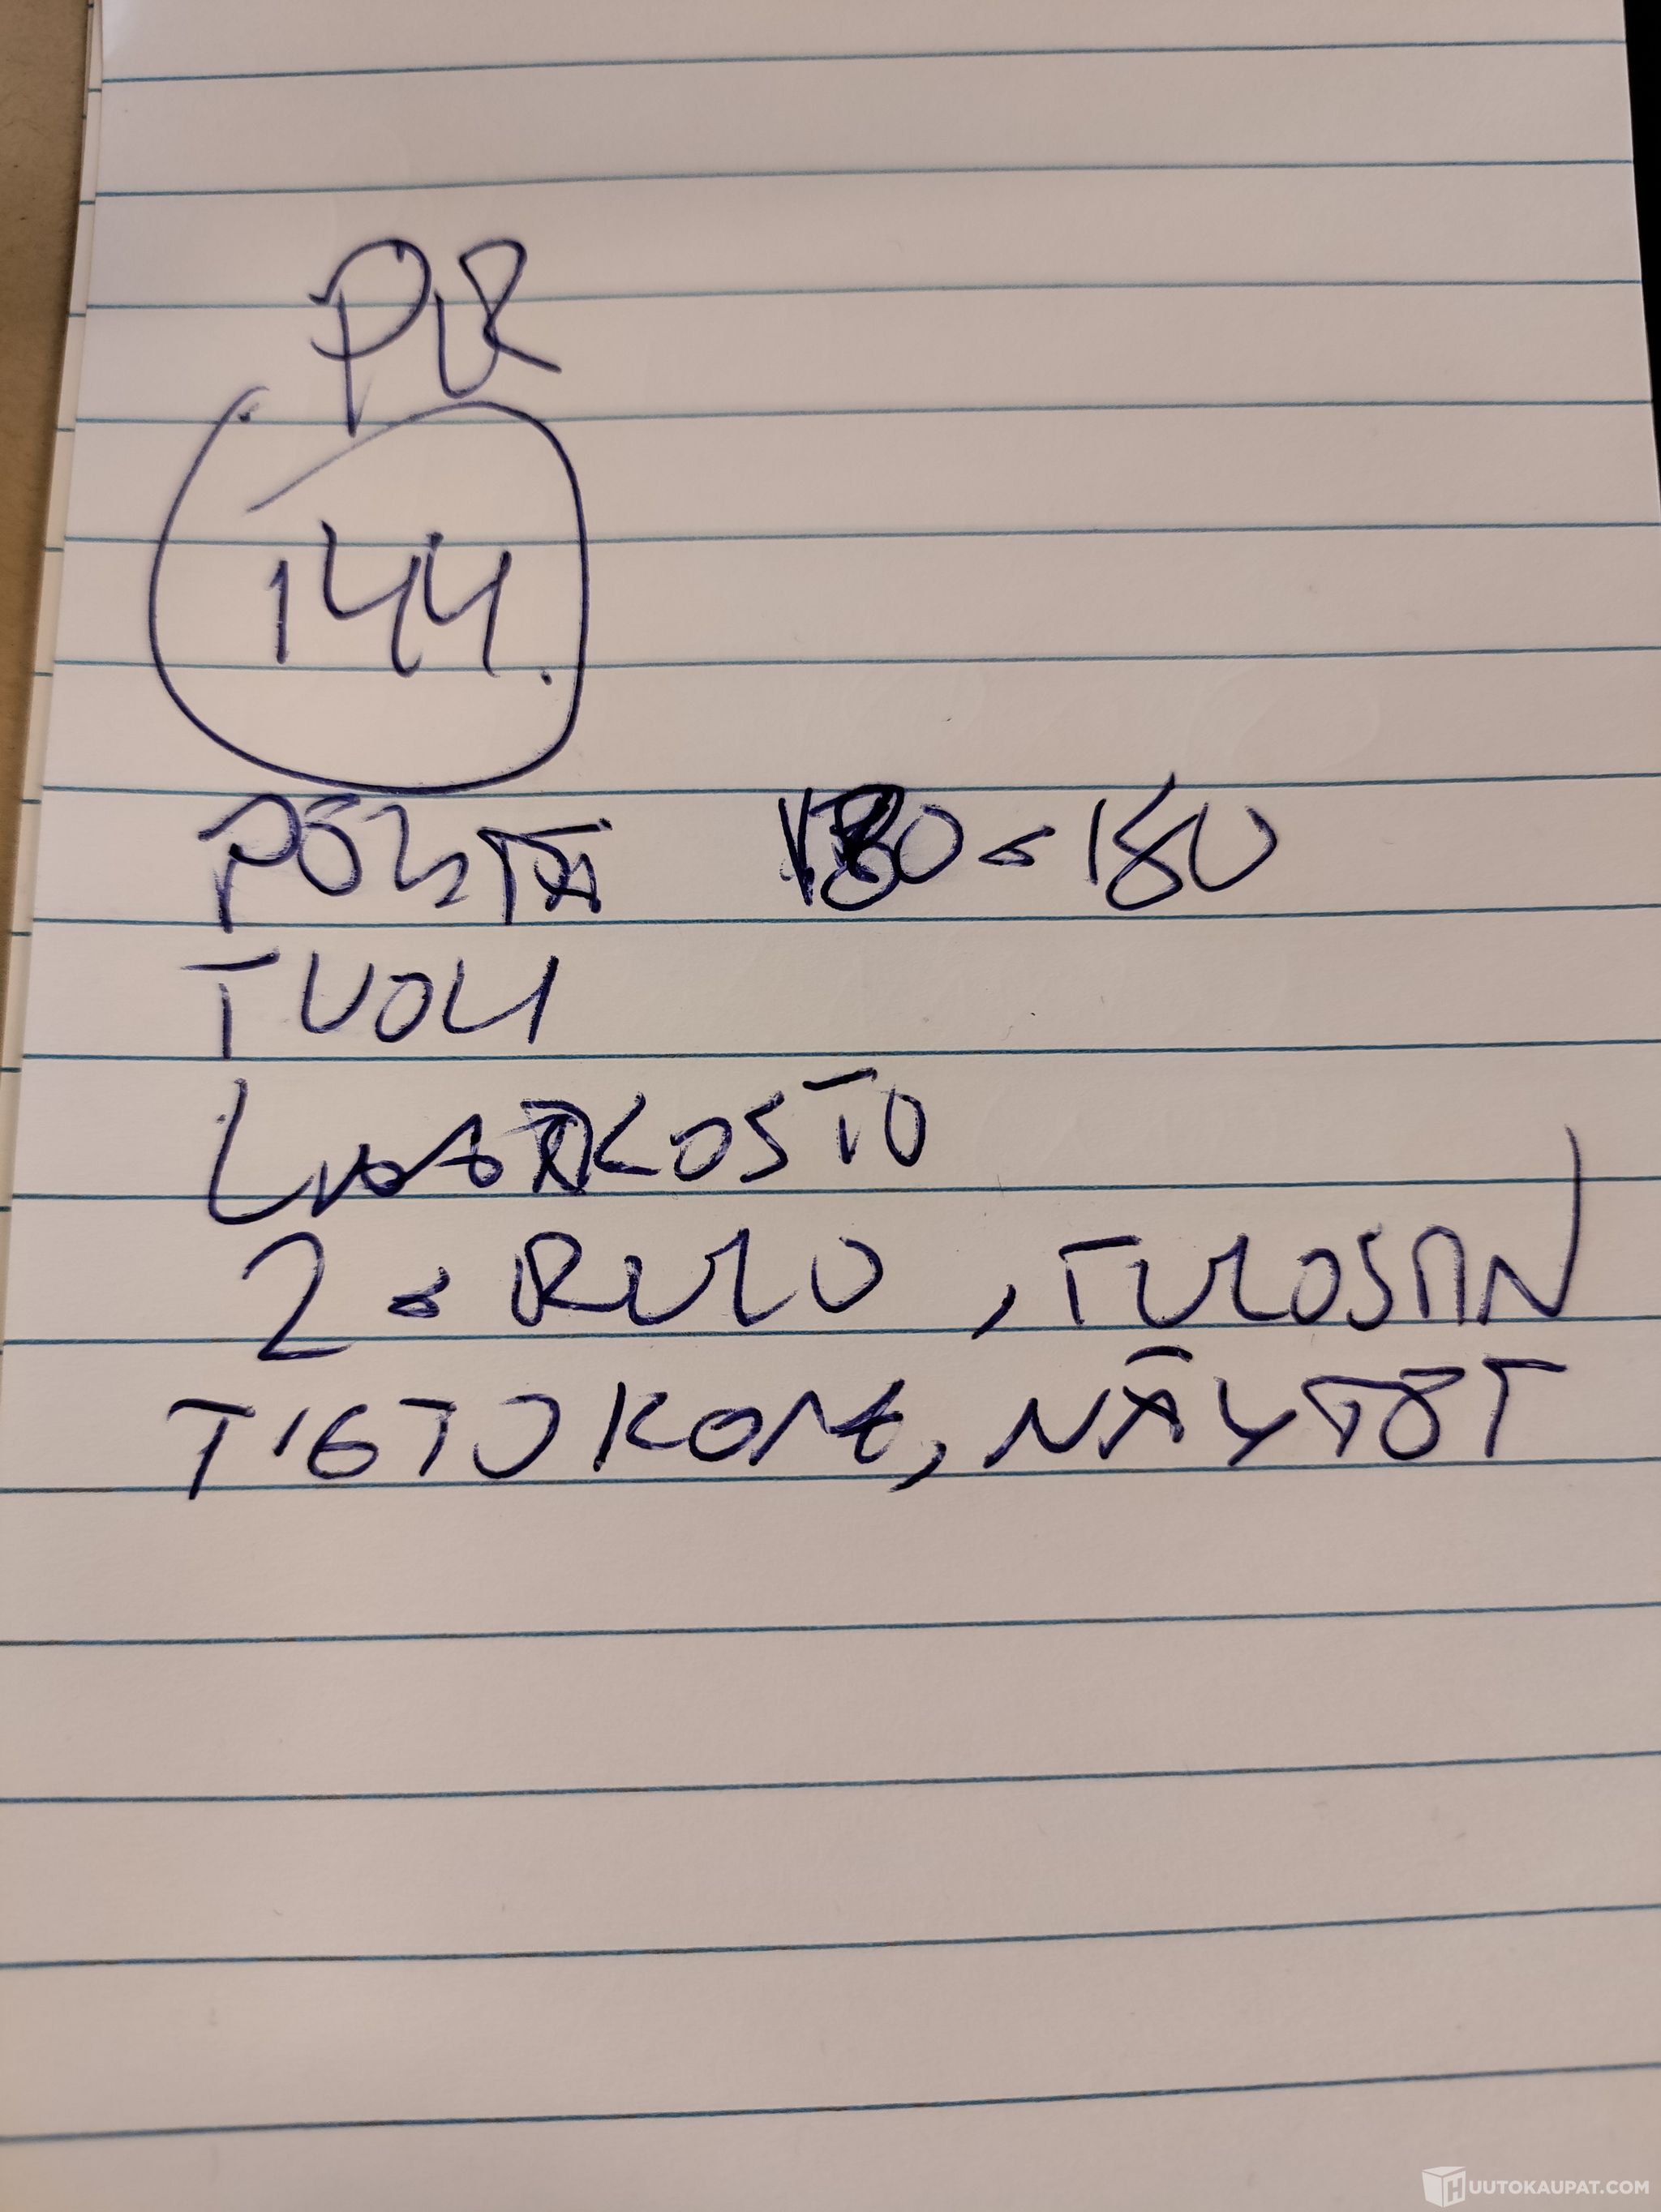 144
PÖYTÄ 180 x 180
TUOLI
LAATIKOSTO
2 x RULO, TULOSTIN
TIETOKONE, NÄYTÖT
HUUTOKAUPAT.COM